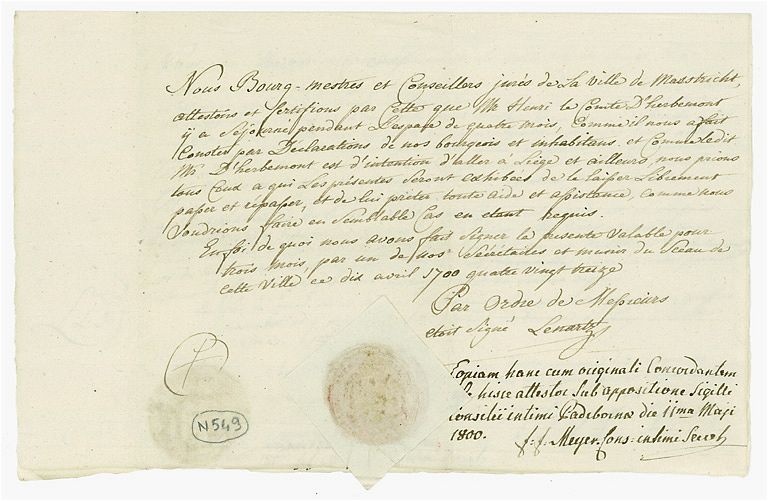 Nous Bourg-mestres et Conseillers jurés de La Ville de Mastricht,
attestons et Certifions par Cette que Mr Henri le Comte D'herbemont
ÿ a Séjourné pendant L'espace de quatre mois, Comme il nous a fait
Conster par Déclarations de nos bourgeois et inhabitans. et Comme Ledit
Mr. D'herbemont est d'intention d'aller à Liége et ailleurs, nous prions
tous Ceux a qui Les présentes Seront exhibées de le laisser Librement
passer et repasser, et de lui prêter toute aide et assistance, comme nous
Voudrions faire en Semblable Cas en étant requis.
En foi de quoi nous avons fait Signer la présente Valable pour
trois mois, par un de nos Sécrétaires et munir du Sceau de
Cette Ville, ce dix avril 1700 quatre vingt treize
Par Ordre de Messieurs
etoit Signé Lenarts
Copiam hanc cum originali Concordantem
hisce attestor Sub appositione Sigilli
consilii intimi Paderbornae die 11ma Maji
1800.
Meyer Cons. intimi Secret
N 549